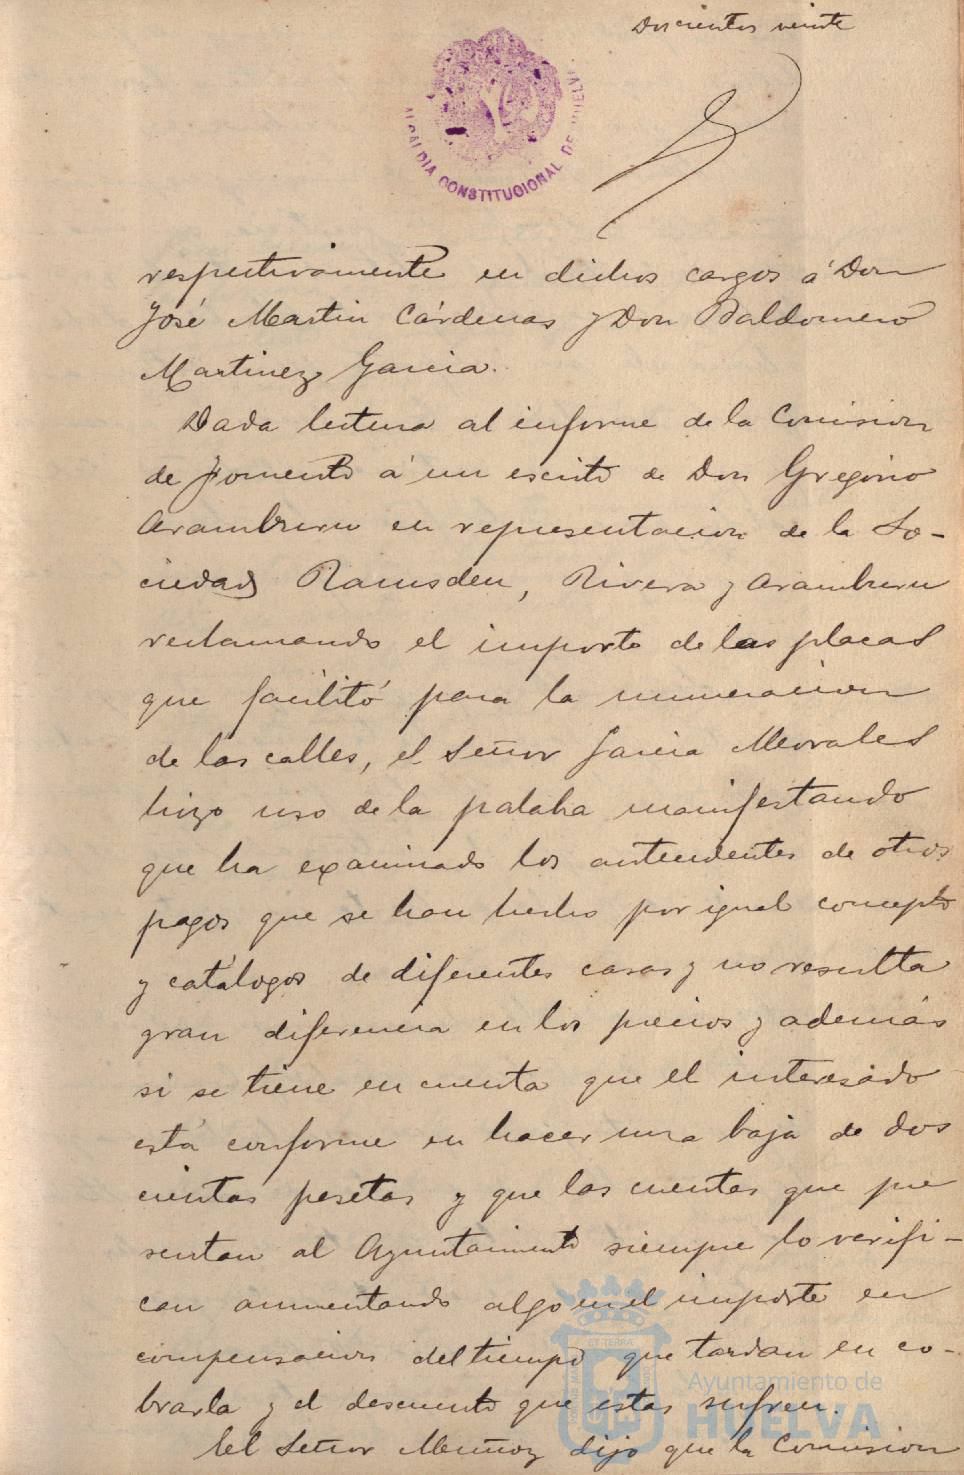 Doscientos veinte
ALCALDIA CONSTITUCIONAL DE HUELVA
respectivamente en dichos cargos á Don
José Martin Cárdenas y Don Baldomero
Martinez Garcia.
Dada lectura al informe de la Comision
de Fomento á un escrito de Don Gregorio
Aramburu en representacion de la So-
ciedad Ramsden, Rivera y Aramburu
reclamando el importe de las placas
que facilitó para la numeracion
de las calles, el Señor Garcia Morales
hizo uso de la palabra manifestando
que ha examinado los antecedentes de otros
pagos que se han hecho por igual concepto
y catálogos de diferentes casas y no resulta
gran diferencia en los precios y además
si se tiene en cuenta que el interesado
está conforme en hacer una baja de dos
cientas pesetas y que las cuentas que pre
sentan al Ayuntamiento siempre lo verifi-
can aumentando algo en el importe en
compensacion del tiempo que tardan en co-
brarla y el descuento que estas sufren.
El Señor Muñoz dijo que la Comision
Ayuntamiento de
HUELVA